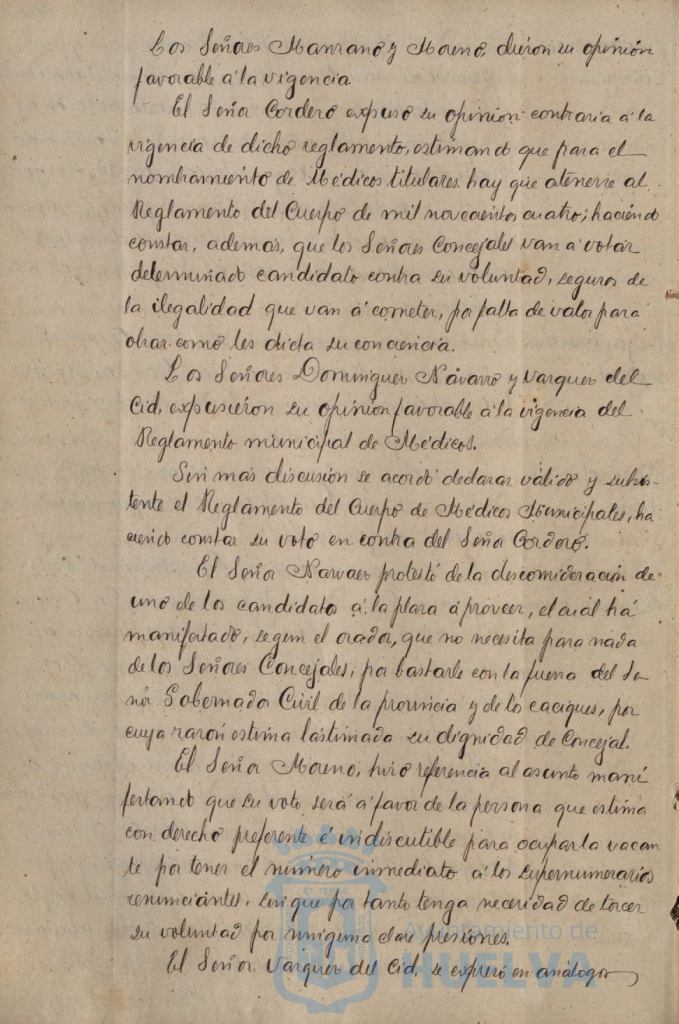 Los Señores Manzano y Moreno, dieron su opinión
favorable á la vigencia
El Señor Cordero expuso su opinión contraria á la
vigencia de dicho reglamento, estimando que para el
nombramiento de Médicos titulares hay que atenerse al
Reglamento del Cuerpo de mil novecientos cuatro; haciendo
constar, además, que los Señores Concejales van a votar
determinado candidato contra su voluntad, seguros de
la ilegalidad que van á cometer, por falta de valor para
obrar como les dicta su conciencia.
Los Señores Dominguez Navarro y Vazquez del
Cid, expusieron su opinión favorable á la vigencia del
Reglamento municipal de Médicos.
Sin más discusión se acordó declarar válido y subsis-
tente el Reglamento del Cuerpo de Médicos Municipales, ha
ciendo constar su voto en contra del Señor Cordero.
El Señor Narvaez protestó de la desconsideración de
uno de los candidatos á la plaza á proveer, el cual há
manifestado, segun el orador, que no necesita para nada
de los Señores Concejales, por bastarle con la fuerza del Se-
ñor Gobernador Civil de la provincia y de los caciques, por
cuya razón estima lastimada su dignidad de Concejal.
El Señor Moreno, hizo referencia al asunto mani
festando que su voto será á favor de la persona que estima
con derecho preferente é indiscutible para ocupar la vacan
te por tener el número inmediato á los supernumerarios
renunciantes, sin que por tanto tenga necesidad de torcer
su voluntad por ninguna clase presiones.
El Señor Vazquez del Cid, se expresó en análogos
Ayuntamiento de
HUELVA